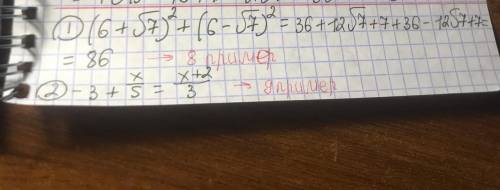 ① (6+√7)² + (6-√7)² = 36+12√7+7+36-12√7+7=
= 86 → 8 пример
② -3 + x/5 = x+2/3 → 9 пример